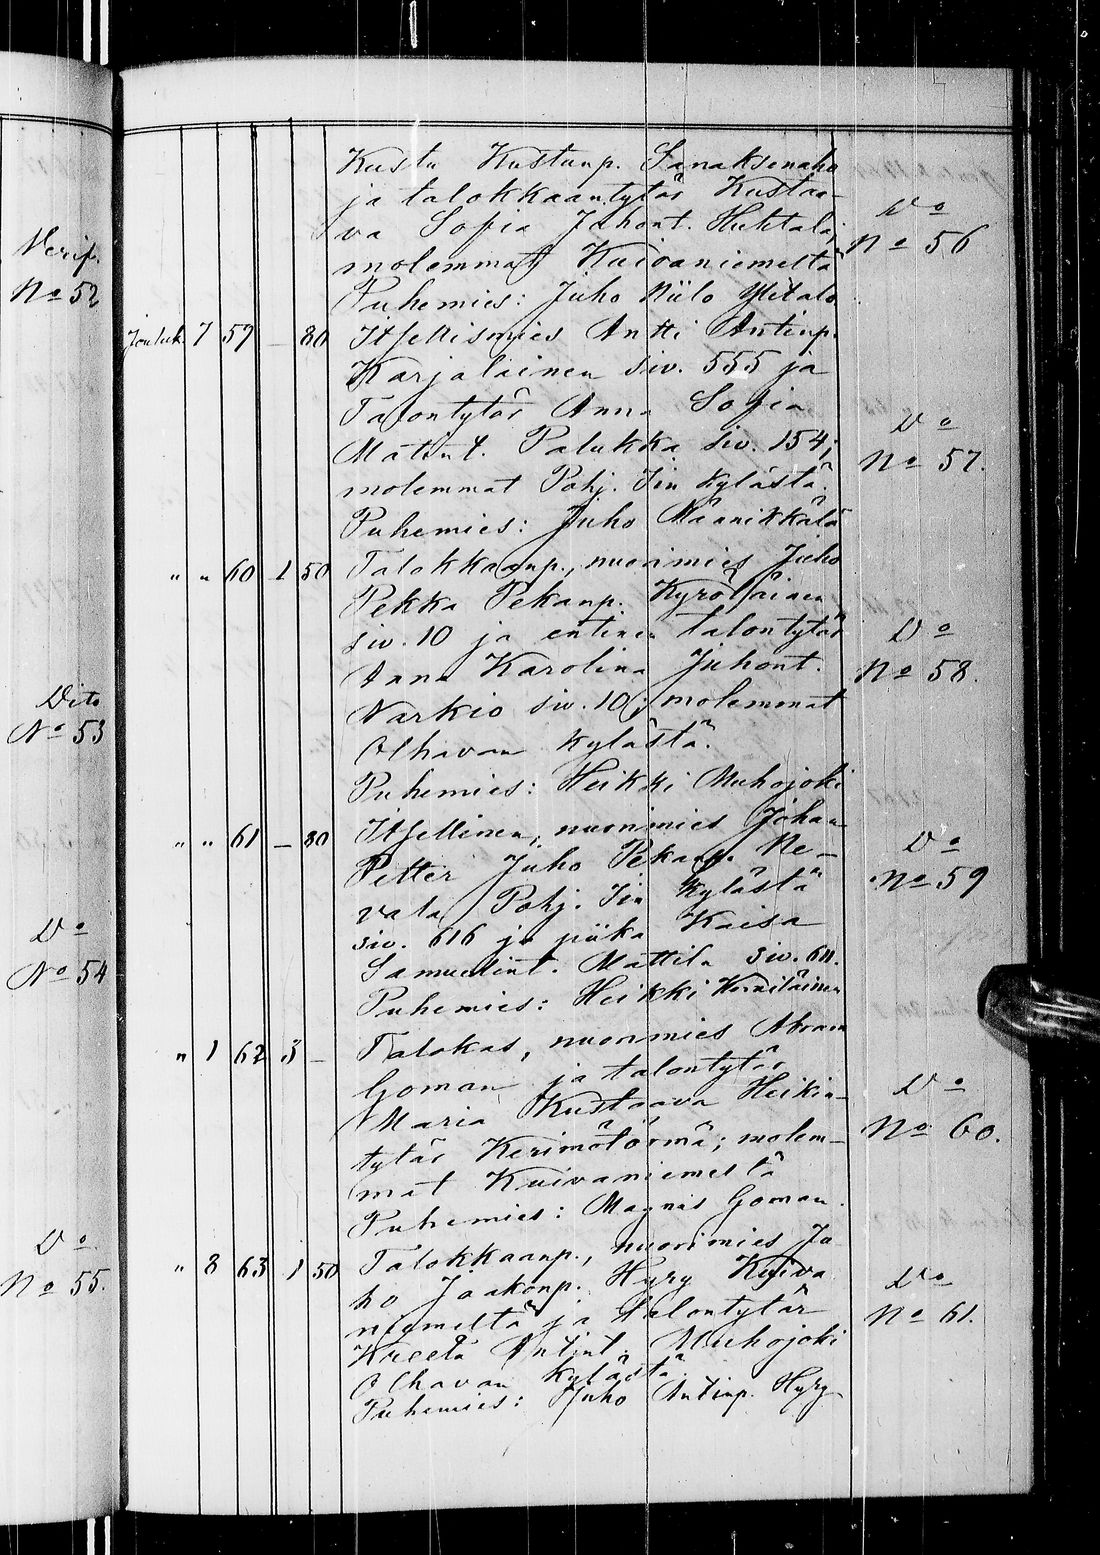 Verif.
No 52
Dito
No 53
Do
No 54
Do
No 55.
Kustu Kustunp. Sanaksenaho
ja talokkaantytär Kustaa-
va Sofia Juhont. Huhtala;
molemmat Kuivaniemeltä
Do
No 56
Puhemies: Juho Niilo Ylitalo
Jouluk. 7 59 — 80 Itsellismies Antti Antinp.
Karjalainen siv. 555 ja
Talontytär Anna Sofia
Matint. Palukka siv. 154;
molemmat Pohj. Iin kylästä.
Do
No 57.
Puhemies: Juho Männikkälä
" " 60 1 50 Talokkaanp., nuorimies Juho
Pekka Pekanp. Kyröläinen
siv. 10 ja entinen talontytär
Anna Karolina Juhont.
Narkio siv. 10; molemmat
Olhavan kylästä.
Do
No 58.
Puhemies: Heikki Muhojoki
" " 61 — 80 Itsellinen, nuorimies Johan
Petter Juho Pekanp. Ne-
vala Pohj. Iin kylästä
siv. 616 ja piika Kaisa
Samuelint. Mattila siv. 611.
Do
No 59
Puhemies: Heikki
" 1 62 3 — Talokas, nuorimies Abram
Goman ja talontytär
Maria Kustaava Heikin-
tytär Kerimätörmä; molem-
mat Kuivaniemeltä
Do
No 60.
Puhemies: Magnus Goman.
" 8 63 1 50 Talokkaanp., nuorimies Ju
ho Jaakonp. Hyry Kuiva
niemeltä ja talontytär
Kreeta Antint. Muhojoki
Olhavan kylästä.
Do
No 61.
Puhemies: Juho Antinp. Hyry